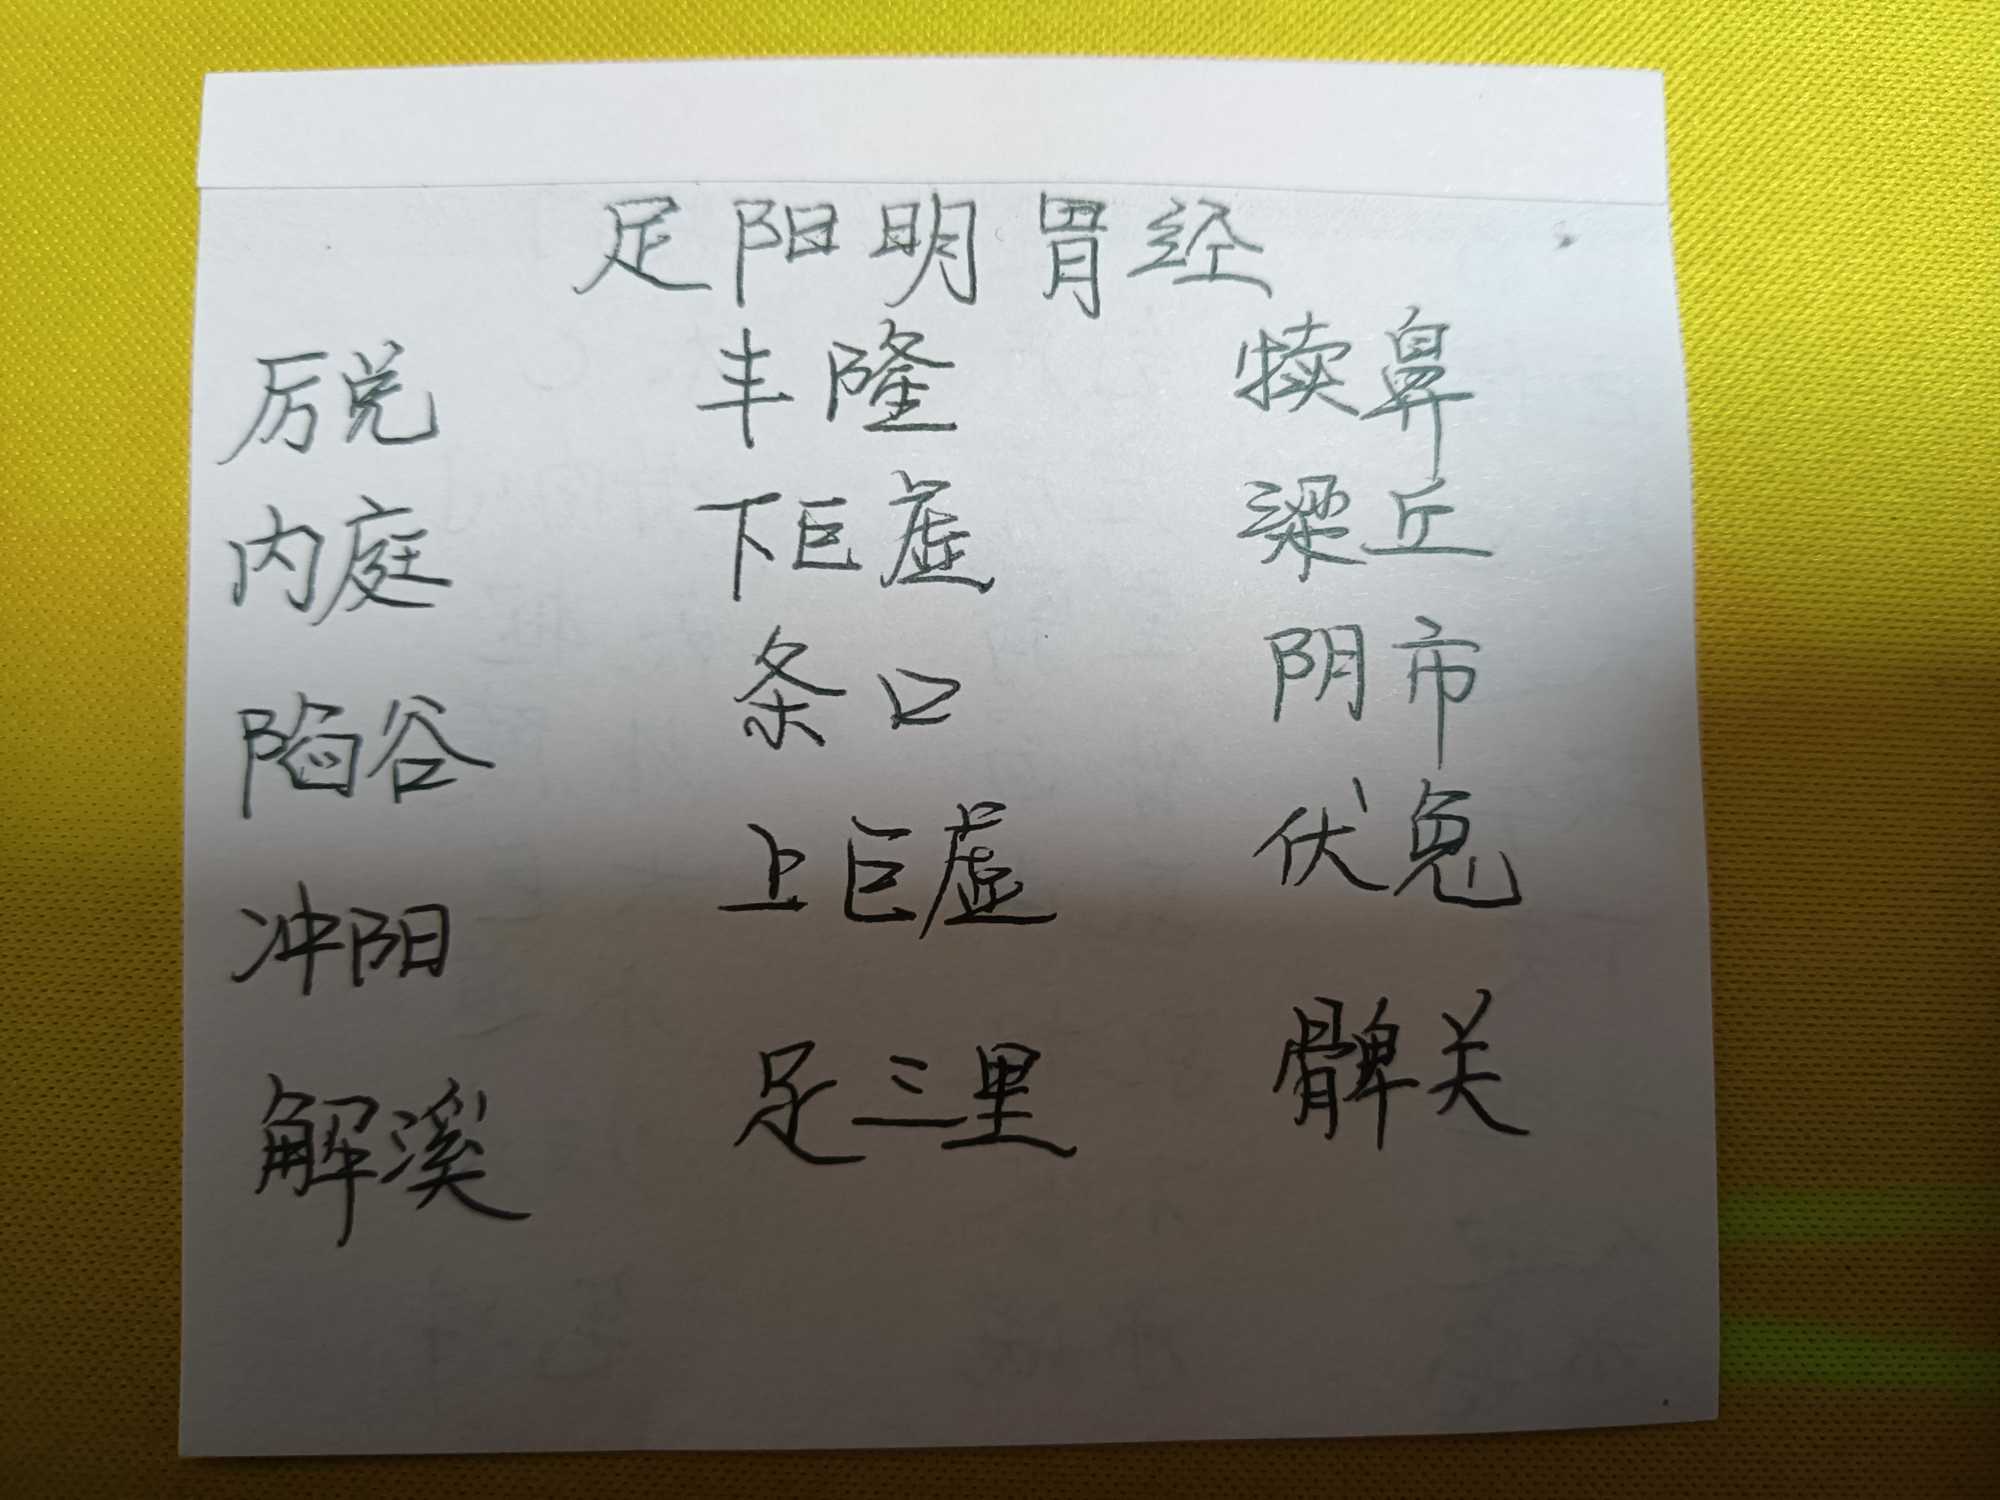 足阳明胃经
厉兑 丰隆 犊鼻
内庭 下巨虚 梁丘
陷谷 条口 阴市
冲阳 上巨虚 伏兔
解溪 足三里 髀关